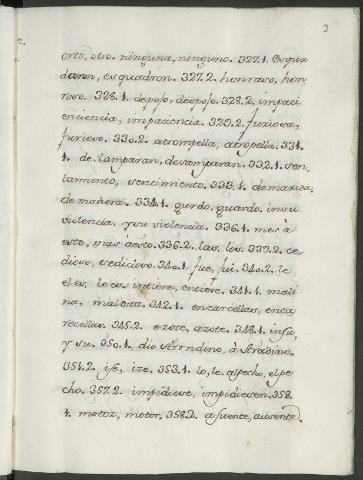 3
orto, otro. ninguna, ninguno. 327.1. esqua
dann, esquadron. 327.2. honraso, hon
roso. 328.1. depojo, deojoso. 328.2. impaci
enciencia, impaciencia. 329.2. furiosa,
furioso. 330.2. atrompella, atropella. 331.
1. de lamparan, desamparan. 332.1. sen
tamiento, sentimiento. 333.1. de marida,
de manera. 334.1. qurdo, quardo. insu
violencia, y su violencia. 336.1. mes à
esto, mas aesto. 336.2. las, los. 339.2. ce
dioso, sedicioso. 340.1. fue, fui. 340.2. le
el es, le es. intiere, entiere. 341.1. mali
na, maldita. 342.1. encarcellas, enca
recellas. 345.2. ezote, azote. 348.1. insu,
y su. 350.1. dio Strrndino, à Stradino.
351.2. ise, ize. 353.1. lo, le. alpecho, el pe
cho. 357.2. impidiese, impidiesen. 358.
1. motoz, motor. 358.2. asuente, ausente.